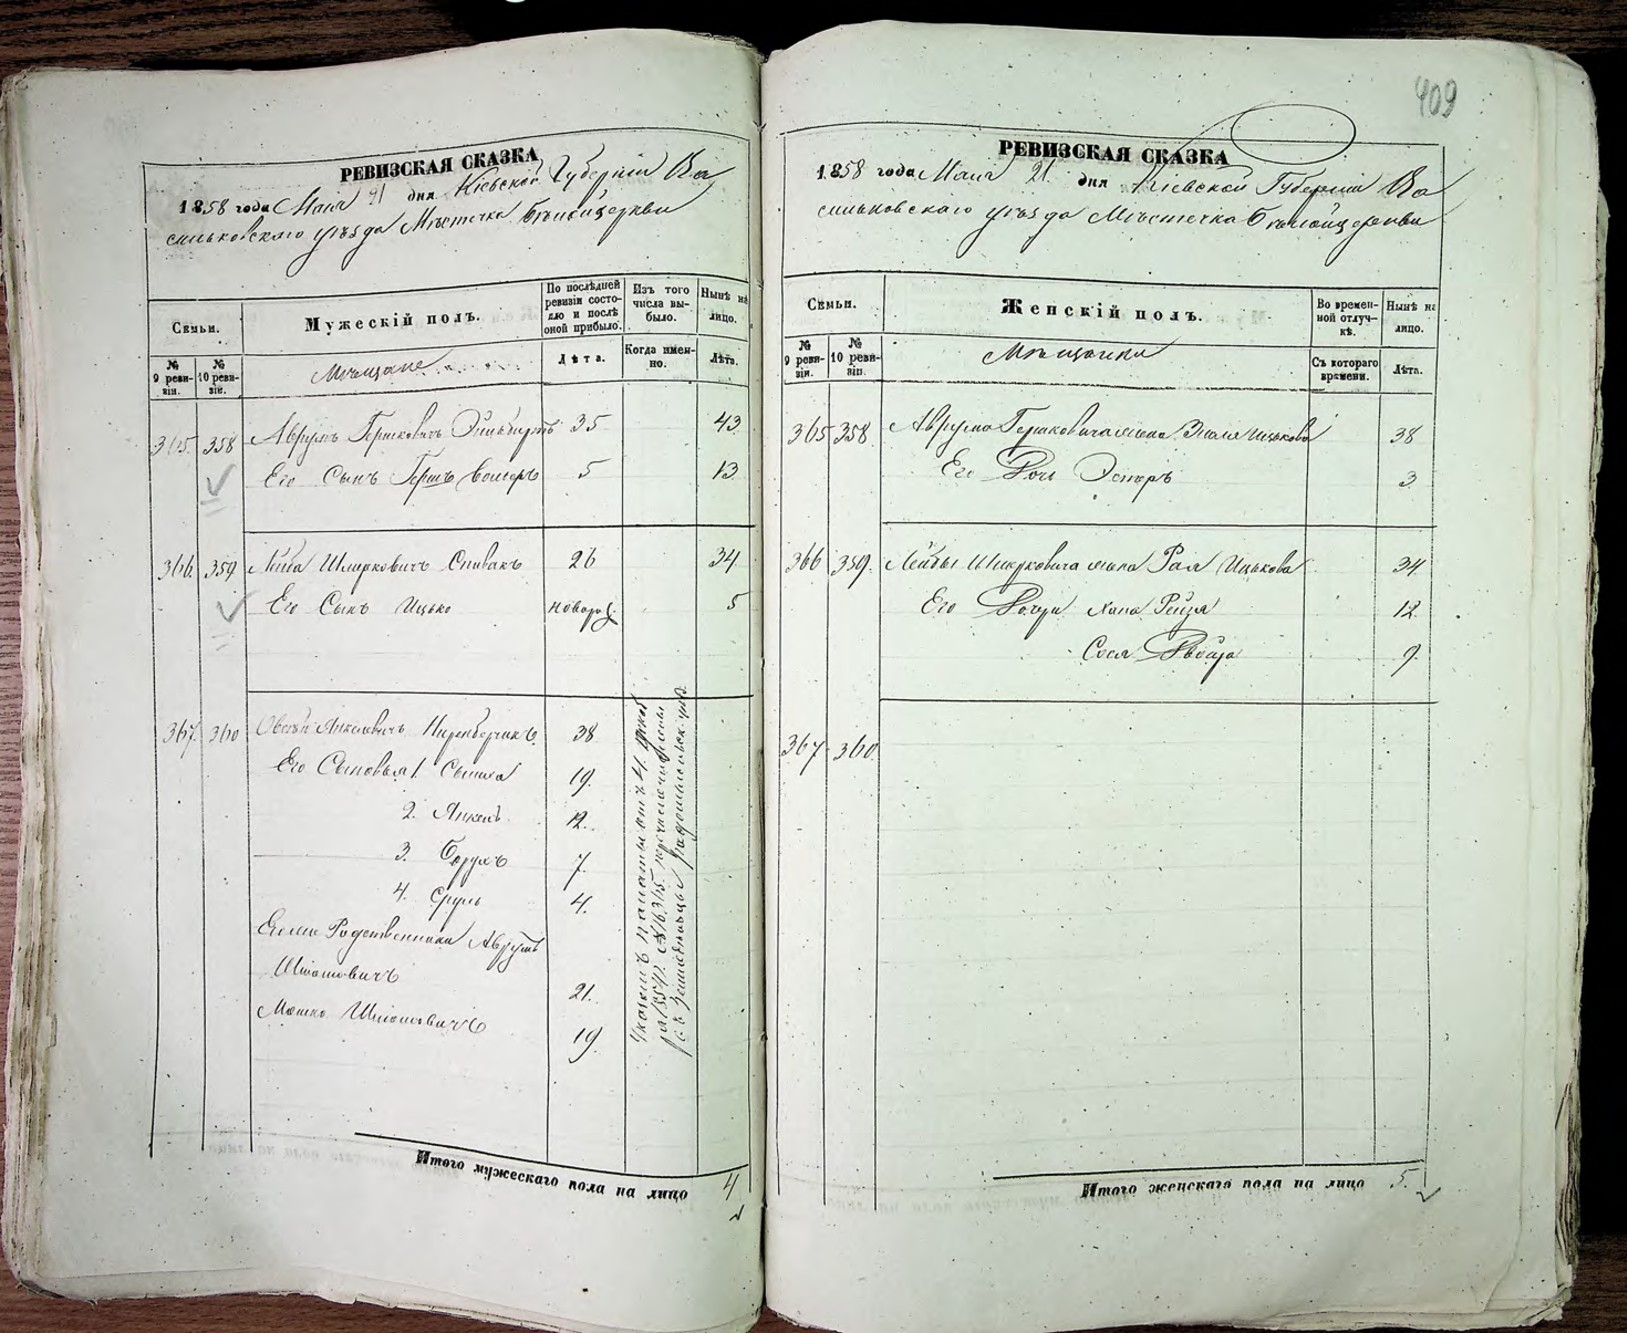 РЕВИЗСКАЯ СКАЗКА
1858 года Мая 21 дня Кіевской Губерніи Ва
сильковскаго уѣзда Мѣстечка Бѣлойцеркви
Семьи.
Мужескій полъ.
По послѣдней ревизіи состояло и послѣ оной прибыло.
Изъ того числа выбыло.
Нынѣ на лицо.
№ 9 ревизіи.
№ 10 ревизіи.
Мѣщане
Лѣта.
Когда именно.
Лѣта.
365 358 Аврумъ Гершковичъ 35 43
Его Сынъ Гершъ 5 13
366. 359 Лейба Шмерковичъ Спивакъ 26 34
Его Сынъ Ицько новорож. 5
367. 360 Овсѣй Янкелевичъ 38
Его Сыновья 1. 19.
2. Янкель 12.
3. Борухъ 7.
4. Сруль 4.
Его Родственники Аврумъ
Шліомовичъ 21.
Мошко Шліомовичъ 19.
Указомъ палаты отъ
Итого мужескаго пола на лицо 4
409
РЕВИЗСКАЯ СКАЗКА
1858 года Мая 21 дня Кіевской Губерніи Ва
сильковскаго уѣзда Мѣстечка Бѣлойцеркви
Семьи.
Женскій полъ.
Во временной отлучкѣ.
Нынѣ на лицо.
№ 9 ревизіи.
№ 10 ревизіи.
Мѣщанки
Съ котораго времени.
Лѣта.
365 358 Аврума Гершковича жена Ицькова 38
Его Дочь Эстеръ 3
366 359. Лейбы Шмерковича жена Рая Ицькова 34
Его Дочери Хана Рейзя 12
Сося Двойра 9.
367 360
Итого женскаго пола на лицо 5.